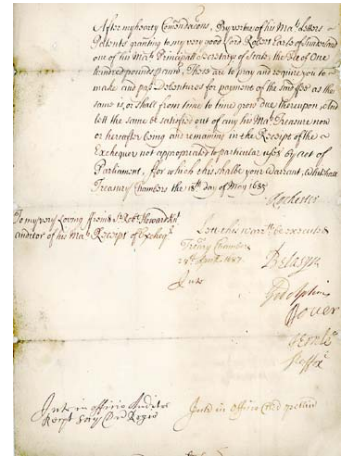 After my hearty Comendacons, By vertue of his Ma.ts Letters
Pattents granting to my very good Lord Robert Earle of Sunderland
one of his Ma.ts Principall Secretarys of State, the Fee of One
hundred pounds p ann, These are to pray and require you to
make and pass Debentures for payment of the said Fee as the
same is, or shall from time to time grow due thereupon, And
lett the same be satisfied out of any his Ma.ts Treasure now
or hereafter being and remaining in the Receipt of the
Excheq.r not appropriated to particular uses by Act of
Parliament, for which this shalbe your Warrant, Whitehall
Treasury Chambers the 18.th day of May 1685
Rochester
To my very Loving friend S.r Rob.t Howard Kn.t
Auditor of his Ma.ts Receipt of Excheq.r
Let this warr.t be executed
Treary Chambers
1687
Belasyse
Godolphin
Dover
Int.r in officio Auditor
Int.r in Officio